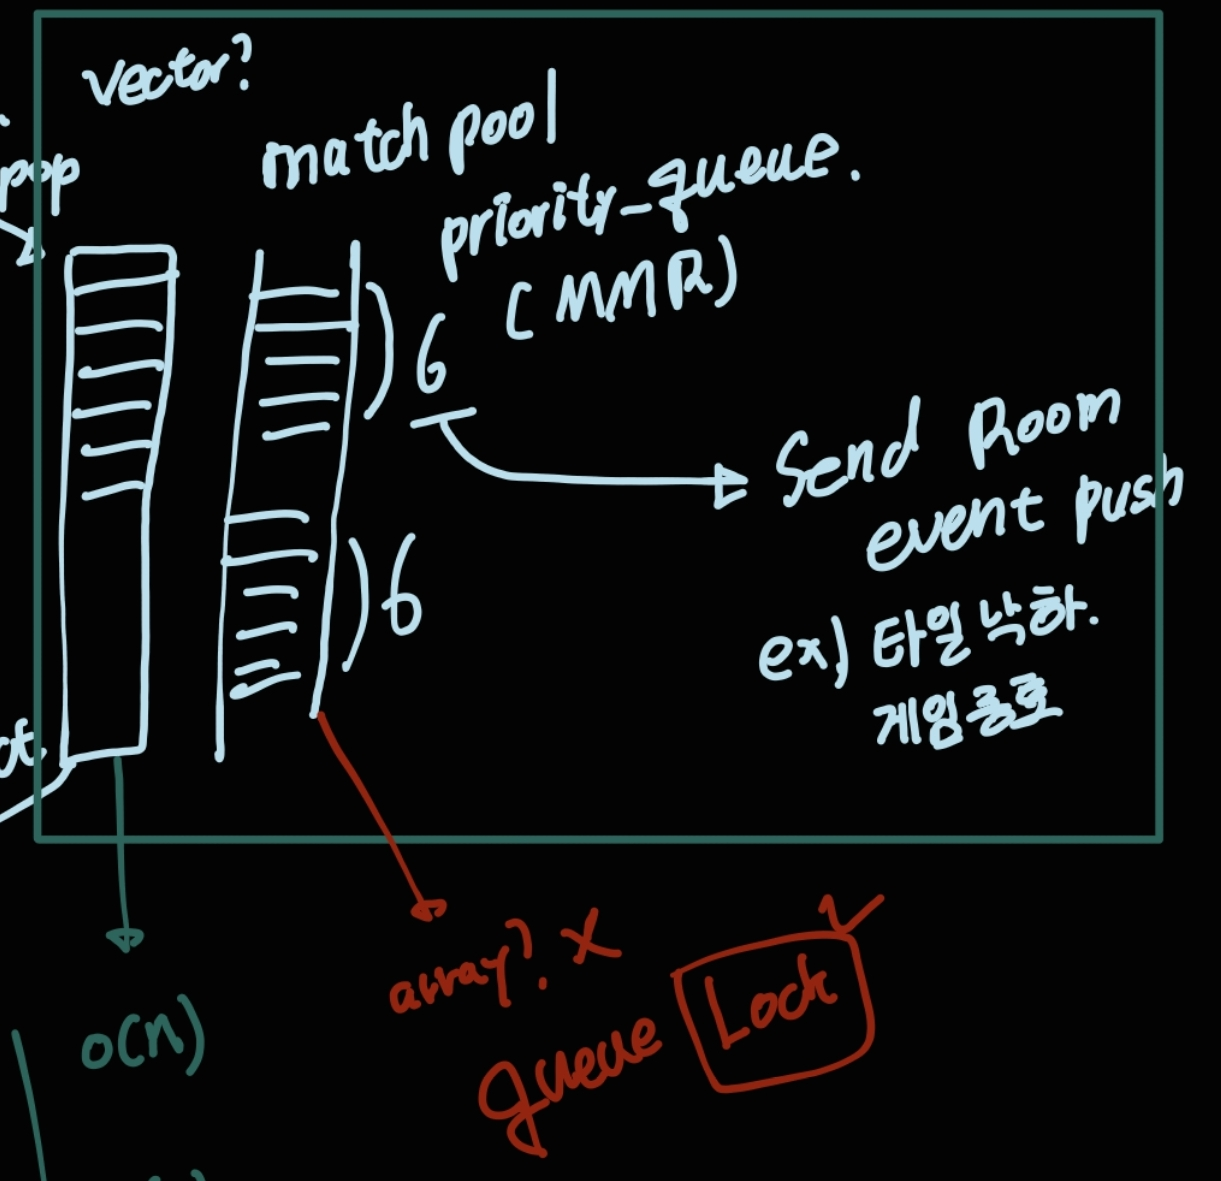 vector?
pop
match pool
priority_queue.
(MMR)
6
Send Room
event push
6
ex) 타일 낙하.
게임 종료
array? X
queue Lock
o(n)